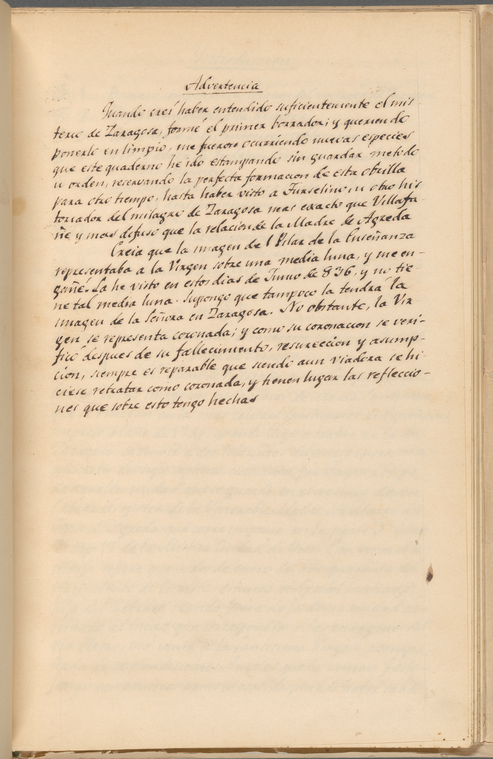 Advertencia
Quando creí haber entendido suficientemente el mis-
terio de Zaragoza, formé el primer borrador; y queriendo
ponerlo en limpio, me fueron ocurriendo nuevas especies
que este quaderno he ido estampando sin guardar metodo
u orden, reservando la perfecta formacion de esta obrilla
para otro tiempo, hasta haber visto a u otro his
toriador del milagro de Zaragoza mas exacto que Villafa-
ñe y mas difuso que la relacion de la Madre de Agreda
Creia que la imagen del Pilar de la Enseñanza
representaba a la Virgen sobre una media luna, y me en-
gañé. La he visto en estos dias de Junio de 836, y no tie
ne tal media luna. Supongo que tampoco la tendrá la
imagen de la Señora en Zaragoza. No obstante, la Vir
gen se representa coronada; y como su coronacion se veri-
ficó despues de su fallecimiento, resureccion y asump-
cion, siempre es reparable que siendo aun viadora se hi
ciese retratar como coronada, y tienen lugar las refleccio-
nes que sobre esto tengo hechas